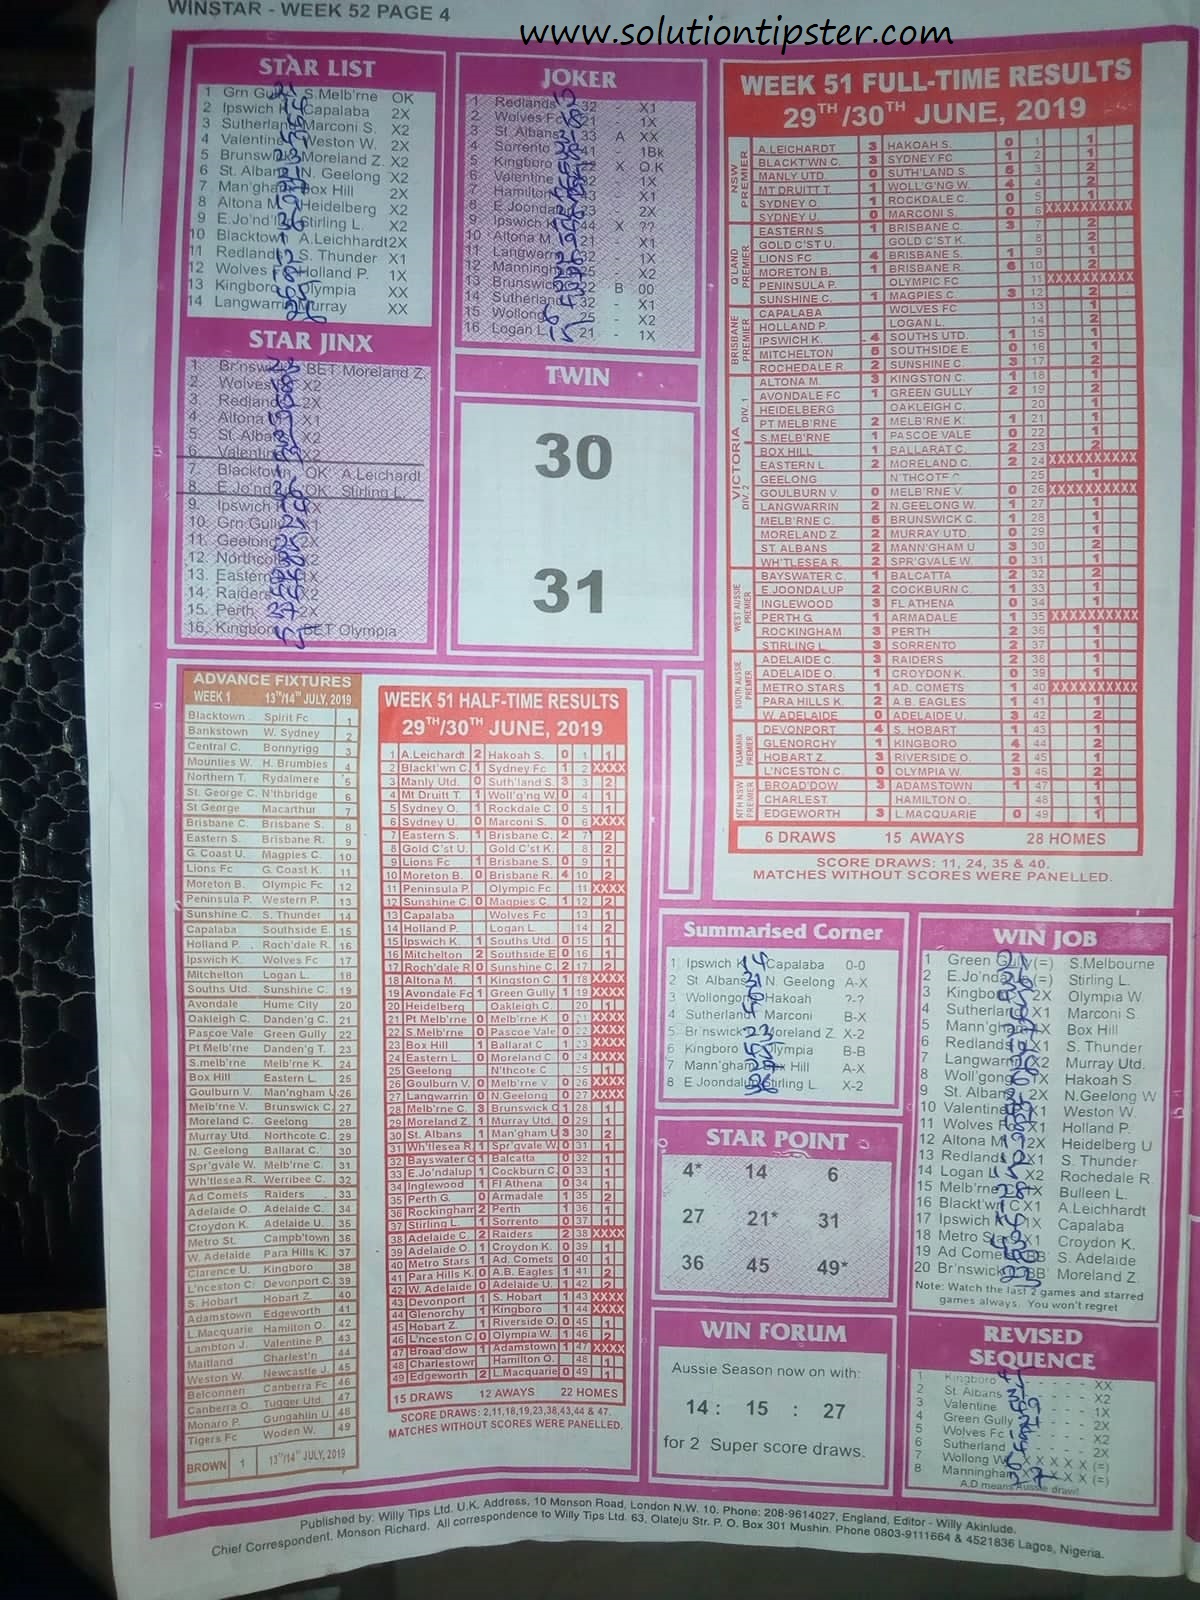 WINSTAR - WEEK 52 PAGE 4
www.solutiontipster.com
STAR LIST
1 Grn S.Melb'rne OK
2 Ipswich Capalaba 2X
3 Sutherlan Marconi S. X2
4 Valentin Weston W. 2X
5 Brunsw Moreland Z. X2
6 St. Alb N. Geelong X2
7 Man'gha Box Hill 2X
8 Altona Heidelberg X2
9 E.Jo'nd' Stirling L. X2
10 Blacktow A.Leichhardt 2X
11 Redland S. Thunder X1
12 Wolves Holland P. 1X
13 Kingbo Olympia XX
14 Langwarr Murray XX
STAR JINX
1. Br'nsw BET Moreland Z.
2. Wolves X2
3. Redland
4. Altona X1
5. St. Alba X2
6. Valentin
7. Blacktown OK A.Leichardt
8. E.Jo'nd OK Stirling L.
9. Ipswich
10. Grn Gully
11. Geelong
12. Northco
13. Eastern
14. Raiders
15. Perth 2X
16. Kingboro BET Olympia
JOKER
1 Redlands 32 - X1
2 Wolves Fc 21 - 1X
3 St. Albans 33 A XX
4 Sorrento 41 - 1Bk
5 Kingboro X O.K
6 Valentine - 1X
7 Hamilton - X1
8 E.Joonda - 2X
9 Ipswich 44 X ??
10 Altona M 21 - X1
11 Langwarr 32 - 1X
12 Manningh 25 - X2
13 Brunswic B 00
14 Sutherlan 32 - X1
15 Wollong 25 - X2
16 Logan L 21 - 1X
TWIN
30
31
WEEK 51 FULL-TIME RESULTS
29TH/30TH JUNE, 2019
NSW PREMIER
A.LEICHARDT 3 HAKOAH S. 0 1 1
BLACKT'WN C. 3 SYDNEY FC 1 2 1
MANLY UTD. 0 SUTH'LAND S. 3 2
MT DRUITT T. 1 WOLL'G'NG W. 4 2
SYDNEY O. 1 ROCKDALE C. 0 5 1
SYDNEY U. 0 MARCONI S. 0 6 XXXXXXXXXX
Q'LAND PREMIER
EASTERN S. 1 BRISBANE C. 3 7 2
GOLD C'ST U. GOLD C'ST K. 8 2
LIONS FC 4 BRISBANE S. 1 9 1
MORETON B. 1 BRISBANE R. 10 2
PENINSULA P. OLYMPIC FC 11 XXXXXXXXXX
SUNSHINE C. 1 MAGPIES C. 3 12 2
BRISBANE PREMIER
CAPALABA WOLVES FC 13
HOLLAND P. LOGAN L. 14
IPSWICH K. 4 SOUTHS UTD. 1 15 1
MITCHELTON SOUTHSIDE E. 0 16 1
ROCHEDALE R 2 SUNSHINE C. 3 17 2
VICTORIA DIV. 1
ALTONA M. 3 KINGSTON C. 1 18 1
AVONDALE FC 1 GREEN GULLY 2 19 2
HEIDELBERG OAKLEIGH C. 20 1
PT MELB'RNE 2 MELB'RNE K. 1 21 1
S.MELB'RNE 1 PASCOE VALE 0 22 1
DIV. 2
BOX HILL 1 BALLARAT C. 2 23 2
EASTERN L. 2 MORELAND C. 2 24 XXXXXXXXXX
GEELONG N'THCOTE C 25 1
GOULBURN V. 0 MELB'RNE V. 0 26 XXXXXXXXXX
LANGWARRIN 2 N.GEELONG W. 1 27 1
MELB'RNE C. BRUNSWICK C. 1 28 1
MORELAND Z. 2 MURRAY UTD. 0 29 1
ST. ALBANS 2 MANN'GHAM U 3 30 2
WH'TLESEA R. 2 SPR'GVALE W. 0 31 1
WEST AUSSIE PREMIER
BAYSWATER C. 1 BALCATTA 2 32 2
E.JOONDALUP 2 COCKBURN C. 1 33 1
INGLEWOOD 3 FL ATHENA 0 34 1
PERTH G. 1 ARMADALE 1 35 XXXXXXXXXX
ROCKINGHAM 3 PERTH 2 36 1
STIRLING L. 3 SORRENTO 2 37 1
SOUTH AUSSIE PREMIER
ADELAIDE C. 3 RAIDERS 2 38 1
ADELAIDE O. 1 CROYDON K. 0 39 1
METRO STARS 1 AD. COMETS 1 40 XXXXXXXXXX
PARA HILLS K. 2 A.B. EAGLES 1 41 1
W. ADELAIDE 0 ADELAIDE U. 3 42 2
TASMANIA PREMIER
DEVONPORT 4 S. HOBART 1 43 1
GLENORCHY 1 KINGBORO 4 44 2
HOBART Z. 3 RIVERSIDE O. 2 45 1
L'NCESTON C. 0 OLYMPIA W. 3 2
NTH NSW PREMIER
BROAD'DOW 3 ADAMSTOWN 1 47 1
CHARLEST. HAMILTON O. 48 1
EDGEWORTH 3 L.MACQUARIE 0 49 1
6 DRAWS 15 AWAYS 28 HOMES
SCORE DRAWS: 11, 24, 35 & 40.
MATCHES WITHOUT SCORES WERE PANELLED.
ADVANCE FIXTURES
WEEK 1 13TH/14TH JULY, 2019
Blacktown Spirit Fc 1
Bankstown W. Sydney 2
Central C. Bonnyrigg 3
Mounties W. H. Brumbles 4
Northern T. Rydalmere 5
St. George C. N'thbridge 6
St George Macarthur 7
Brisbane C. Brisbane S. 8
Eastern S. Brisbane R. 9
G. Coast U. Magpies C. 10
Lions Fc G. Coast K. 11
Moreton B. Olympic Fc 12
Peninsula P. Western P. 13
Sunshine C. S. Thunder 14
Capalaba Southside E. 15
Holland P. Roch'dale R. 16
Ipswich K. Wolves Fc 17
Mitchelton Logan L. 18
Souths Utd. Sunshine C. 19
Avondale Hume City 20
Oakleigh C. Danden'g C. 21
Pascoe Vale Green Gully 22
Pt Melb'rne Danden'g T. 23
S.melb'rne Melb'rne K. 24
Box Hill Eastern L. 25
Goulburn V. Man'ngham U 26
Melb'rne V. Brunswick C. 27
Moreland C. Geelong 28
Murray Utd. Northcote C. 29
N. Geelong Ballarat C. 30
Spr'gvale W. Melb'rne C. 31
Wh'tlesea R. Werribee C. 32
Ad Comets Raiders 33
Adelaide O. Adelaide C. 34
Croydon K. Adelaide U. 35
Metro St. Campb'town 36
W. Adelaide Para Hills K. 37
Clarence U. Kingboro 38
L'nceston C. Devonport C. 39
S. Hobart Hobart Z. 40
Adamstown Edgeworth 41
L.Macquarie Hamilton O. 42
Lambton J. Valentine P. 43
Maitland Charlest'n 44
Weston W. Newcastle J. 45
Belconnen Canberra Fc 46
Canberra O. Tugger Utd. 47
Monaro P. Gungahlin U. 48
Tigers Fc Woden W. 49
BROWN 1 13TH/14TH JULY, 2019
WEEK 51 HALF-TIME RESULTS
29TH/30TH JUNE, 2019
1 A.Leichardt 2 Hakoah S. 0 1 1
2 Blackt'wn C. 1 Sydney Fc 1 2 XXXX
3 Manly Utd. 0 Suth'land S. 3 3 2
4 Mt Druitt T. 1 Woll'g'ng W. 0 4 1
5 Sydney O. 1 Rockdale C. 0 5 1
6 Sydney U. 0 Marconi S. 0 6 XXXX
7 Eastern S. 1 Brisbane C. 2 7 2
8 Gold C'st U. Gold C'st K. 8 2
9 Lions Fc 1 Brisbane S. 0 9 1
10 Moreton B. 0 Brisbane R. 4 10 2
11 Peninsula P. Olympic Fc 11 XXXX
12 Sunshine C. 0 Magpies C. 1 12 2
13 Capalaba Wolves Fc 13 2
14 Holland P. Logan L. 14 2
15 Ipswich K. 1 Souths Utd. 0 15 1
16 Mitchelton 2 Southside E. 0 16 1
17 Roch'dale R 0 Sunshine C. 2 17 2
18 Altona M. 1 Kingston C. 1 18 XXXX
19 Avondale Fc 1 Green Gully 1 19 XXXX
20 Heidelberg Oakleigh C. 20 1
21 Pt Melb'rne 0 Melb'rne K 0 21 XXXX
22 S.Melb'rne 0 Pascoe Vale 0 22 XXXX
23 Box Hill 1 Ballarat C 1 23 XXXX
24 Eastern L. 0 Moreland C 0 24 XXXX
25 Geelong N'thcote C 25 1
26 Goulburn V. 0 Melb'rne V 0 26 XXXX
27 Langwarrin 0 N.Geelong 0 27 XXXX
28 Melb'rne C. 3 Brunswick C 1 28 1
29 Moreland Z. 1 Murray Utd. 0 29 1
30 St. Albans 1 Man'gham U 3 30 2
31 Wh'tlesea R. 1 Spr'gvale W. 0 31 1
32 Bayswater C 1 Balcatta 0 32 1
33 E.Jo'ndalup 1 Cockburn C. 0 33 1
34 Inglewood 1 Fl Athena 0 34 1
35 Perth G. 0 Armadale 1 35 2
36 Rockingham 2 Perth 1 36 1
37 Stirling L. 1 Sorrento 0 37 1
38 Adelaide C. 2 Raiders 2 38 XXXX
39 Adelaide O. 1 Croydon K. 0 39 1
40 Metro Stars 1 Ad. Comets 0 40 1
41 Para Hills K. 0 A.B. Eagles 1 41 2
42 W. Adelaide 0 Adelaide U. 1 42 2
43 Devonport 1 S. Hobart 1 43 XXXX
44 Glenorchy 1 Kingboro 1 44 XXXX
45 Hobart Z. 1 Riverside O. 0 45 1
46 L'nceston C 0 Olympia W. 1 46 2
47 Broad'dow 1 Adamstown 1 47 XXXX
48 Charlestown Hamilton O. 48 1
49 Edgeworth 2 L.Macquarie 0 49 1
15 DRAWS 12 AWAYS 22 HOMES
SCORE DRAWS: 2,11,18,19,23,38,43,44 & 47.
MATCHES WITHOUT SCORES WERE PANELLED.
Summarised Corner
1 Ipswich K Capalaba 0-0
2 St Albans N. Geelong A-X
3 Wollongon Hakoah ?-?
4 Sutherlan Marconi B-X
5 Br'nswick Moreland Z. X-2
6 Kingboro Olympia B-B
7 Mann'gha Box Hill A-X
8 E Joondalup Stirling L. X-2
STAR POINT
4* 14 6
27 21* 31
36 45 49*
WIN FORUM
Aussie Season now on with:
14 : 15 : 27
for 2 Super score draws.
WIN JOB
1 Green Gully (=) S.Melbourne
2 E.Jo'nda (=) Stirling L.
3 Kingbo 2X Olympia W
4 Sutherlan X1 Marconi S.
5 Mann'gh X Box Hill
6 Redlands X1 S. Thunder
7 Langwar X2 Murray Utd.
8 Woll'gong 1X Hakoah S.
9 St. Alban 2X N.Geelong W
10 Valentin X1 Weston W.
11 Wolves X1 Holland P.
12 Altona M 2X Heidelberg U
13 Redland X1 S. Thunder
14 Logan L X2 Rochedale R.
15 Melb'rne 1X Bulleen L.
16 Blackt'wn C X1 A.Leichhardt
17 Ipswich K 1X Capalaba
18 Metro St X1 Croydon K.
19 Ad Come BB' S. Adelaide
20 Br'nswic BB' Moreland Z.
Note: Watch the last 2 games and starred
games always. You won't regret
REVISED
SEQUENCE
1 Kingboro - - - - XX
2 St. Albans - - - - X2
3 Valentine - - - - 1X
4 Green Gully - - - - 2X
5 Wolves Fc - - - - X2
6 Sutherland - - - - 2X
7 Wollong W X X X X X (=)
8 Manningham X X X X (=)
A.D means Aussie draw!
Published by: Willy Tips Ltd. U.K. Address, 10 Monson Road, London N.W. 10. Phone: 208-9614027, England, Editor - Willy Akinlude.
Chief Correspondent. Monson Richard. All correspondence to Willy Tips Ltd. 63, Olateju Str. P. O. Box 301 Mushin. Phone 0803-9111664 & 4521836 Lagos, Nigeria.